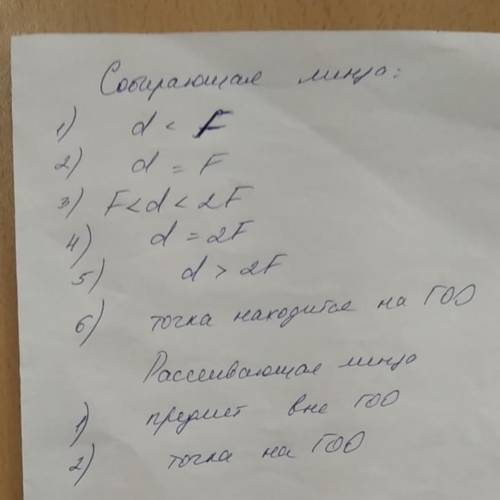 Собирающая линза:
1) d < F
2) d = F
3) F < d < 2F
4) d = 2F
5) d > 2F
6) точка находится на ГОО
Рассеивающая линза
1) предмет вне ГОО
2) точка на ГОО